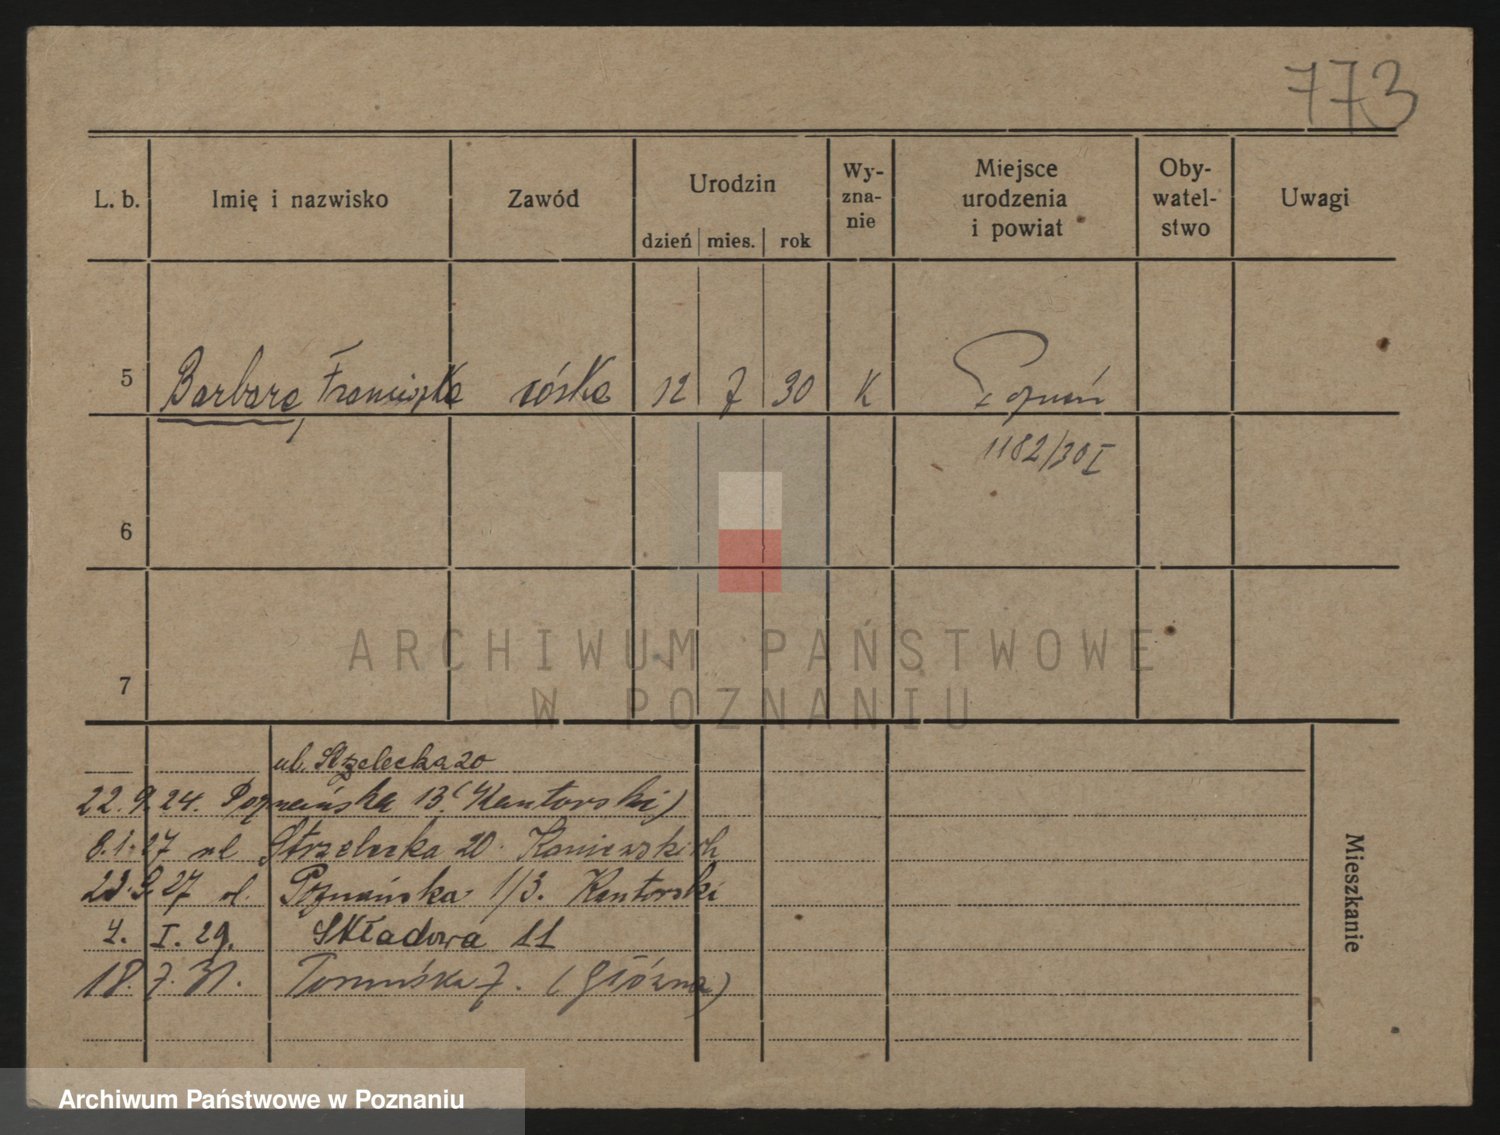 773
L. b. Imię i nazwisko Zawód Urodzin dzień mies. rok Wy-zna-nie Miejsce urodzenia i powiat Oby-watel-stwo Uwagi
5 Barbara, Franciszka córka 12 7 30 K Poznań
1182/30 I
6
7
ARCHIWUM PAŃSTWOWE
W POZNANIU
ul. Strzelecka 20
22. 9. 24. Poznańska 13 (Kantorski)
8. 1. 27 ul Strzelecka 20. Kaniewskich
23. 9. 27 ul. Poznańska 1/3. Kantorski
4. I. 29. Składowa 11
18. 7. 31. Toruńska 7. (Główna)
Mieszkanie
Archiwum Państwowe w Poznaniu